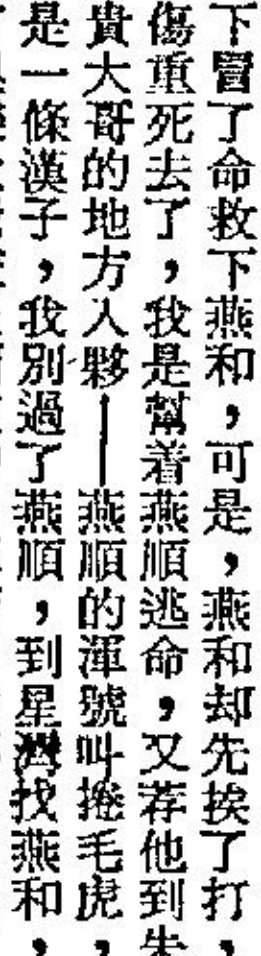 下冒了命救下燕和，可是，燕和却先挨了打，
傷重死去了，我是幫着燕順逃命，又荐他到朱
貴大哥的地方入夥——燕順的渾號叫捲毛虎，
是一條漢子，我別過了燕順，到星灣找燕和，